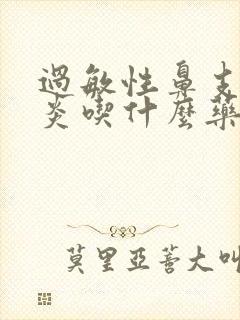 過敏性鼻支
炎喫什麼藥
莫里亞蒼大叫